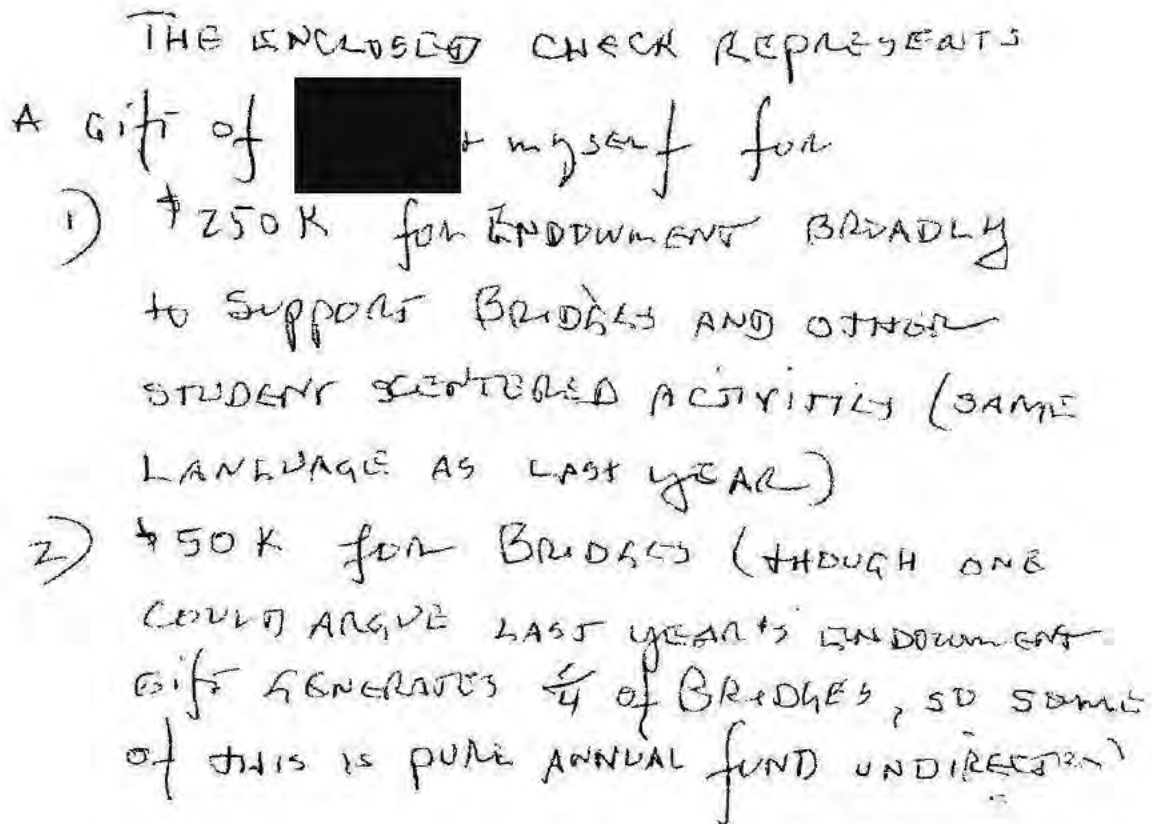 THE ENCLOSED CHECK REPRESENTS
A Gift of + myself for
1) $250K for ENDOWMENT BROADLY
to SUPPORT BRIDGES AND OTHER
STUDENT CENTERED ACTIVITIES (SAME
LANGUAGE AS LAST YEAR)
2) $50K for BRIDGES (THOUGH ONE
COULD ARGUE LAST YEAR'S ENDOWMENT
Gift GENERATES of BRIDGES, SO SOME
of THIS IS PURE ANNUAL FUND